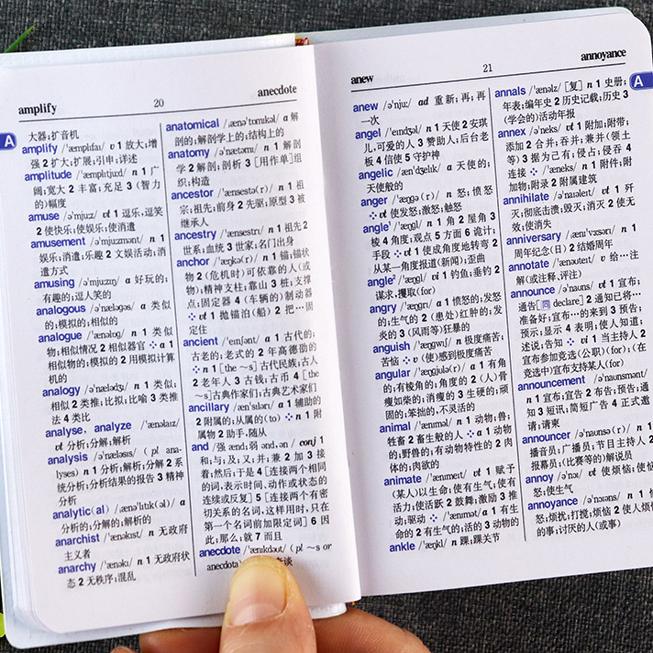 amplify 20 anecdote
A
大器;扩音机
amplify /'æmplɪfaɪ/ v 1 放大;增
强 2 扩大;扩展;引申;详述
amplitude /'æmplɪtjuːd/ n 1 广
阔;宽大 2 丰富;充足 3 (智力
的)幅度
amuse /ə'mjuːz/ vt 1 逗乐;逗笑
2 使快乐;使娱乐;使消遣
amusement /ə'mjuːzmənt/ n 1
娱乐;消遣;乐趣 2 文娱活动;消
遣方式
amusing /ə'mjuːzɪŋ/ a 好玩的;
有趣的;逗人笑的
analogous /ə'næləgəs/ a 类似
的;模拟的;相似的
analogue /'ænəlɒg/ n 1 类似
物;相似情况 2 相似器官 ❖ a 1
相似物的;模拟的 2 用模拟计算
机的
analogy /ə'nælədʒɪ/ n 1 类似;
相似 2 类推;比拟;比喻 3 类推
法 4 类比
analyse, analyze /'ænəlaɪz/
vt 分析;分解;解析
analysis /ə'næləsɪs/ (pl ana-
lyses) n 1 分析;解析;分解 2 系
统分析;分析结果的报告 3 精神
分析
analytic(al) /ænə'lɪtɪk(əl)/ a
分析的;分解的;解析的
anarchist /'ænəkɪst/ n 无政府
主义者
anarchy /'ænəkɪ/ n 1 无政府状
态 2 无秩序;混乱
anatomical /ænə'tɒmɪkəl/ a 解
剖的;解剖学上的;结构上的
anatomy /ə'nætəmɪ/ n 1 解剖
学 2 解剖;剖析 3 [用作单]组
织;构造
ancestor /'ænsestə(r)/ n 1 祖
宗;祖先;前身 2 先驱;原型 3 被
继承人
ancestry /'ænsestrɪ/ n 1 祖先 2
世系;血统 3 世家;名门出身
anchor /'æŋkə(r)/ n 1 锚;锚状
物 2 (危机时)可依靠的人(或
物);精神支柱;靠山 3 桩;支撑
点;固定器 4 (车辆的)制动器
❖ vt 1 抛锚泊(船) 2 把…固
定住
ancient /'eɪnʃənt/ a 1 古代的;
古老的;老式的 2 年高德劭的
❖ n 1 [the ~s] 古代民族;古人
2 老年人 3 古钱;古币 4 [the
~s]古典作家们;古典艺术家们
ancillary /æn'sɪlərɪ/ a 1 辅助的
2 附属的;从属的(to) ❖ n 1 附
属物 2 助手,随从
and /强 ænd;弱 ənd,ən/ conj 1
和;与;及;又;并;兼 2 加 3 接
着;然后;于是 4 [连接两个相同
的词,表示时间、动作或状态的
连续或反复] 5 [连接两个有密
切关系的名词,这样用时,只在
第一个名词前加限定词] 6 因
此;那么;就 7 而且
anecdote /'ænɪkdəʊt/ (pl ~s or
anew 21 annoyance
A
anew /ə'njuː/ ad 重新;再;再
一次
angel /'eɪndʒəl/ n 1 天使 2 安琪
儿;可爱的人 3 赞助人;后台老
板 4 信使 5 守护神
angelic /æn'dʒelɪk/ a 天使的;
天使般的
anger /'æŋgə(r)/ n 怒;愤怒
❖ vt 使发怒;激怒;触怒
angle¹ /'æŋgl/ n 1 角 2 屋角 3
棱 4 角度;观点 5 方面 6 诡计;
手段 ❖ vt 1 使成角度地转弯 2
从某一角度报道(新闻);歪曲
angle² /'æŋgl/ vi 1 钓鱼;垂钓 2
谋求,攫取(for)
angry /'æŋgrɪ/ a 1 愤怒的;发怒
的;生气的 2 (患处)红肿的;发
炎的 3 (风雨等)狂暴的
anguish /'æŋgwɪʃ/ n 极度痛苦;
苦恼 ❖ v (使)感到极度痛苦
angular /'æŋgjʊlə(r)/ a 1 有角
的;有棱角的;角度的 2 (人)骨
瘦如柴的;消瘦的 3 生硬的;顽
固的;笨拙的,不灵活的
animal /'ænɪməl/ n 1 动物;兽;
牲畜 2 畜生般的人 ❖ a 1 动物
的;野兽的;有动物特性的 2 肉
体的;肉欲的
animate /'ænɪmeɪt/ vt 1 赋予
(某人)以生命;使有生气;使有
活力;使活跃 2 鼓舞;激励 3 推
动;驱动 ❖ /'ænɪmət/a 1 有生
命的 2 有生气的;活的 3 动物的
ankle /'æŋkl/ n 踝;踝关节
annals /'ænəlz/ [复] n 1 史册;
年表;编年史 2 历史记载;历史 3
(学会的)活动年报
annex /ə'neks/ vt 1 附加;附带;
添加 2 合并;吞并;兼并(领土
等) 3 据为己有,侵占;窃得
❖ /'æneks/ n 1 附件;附
加物;附录 2 附属建筑
annihilate /ə'naɪəleɪt/ vt 1 歼
灭;彻底击溃;毁灭;消灭 2 使无
效;使消失
anniversary /ænɪ'vɜːsərɪ/ n 1
周年纪念(日) 2 结婚周年
annotate /'ænəʊteɪt/ v 给…注
解(或注释,评注)
announce /ə'naʊns/ vt 1 宣布;
通告[同 declare] 2 通知已将…
准备好;宣布…的来到 3 预告;
预示;显示 4 表明;使人知道;
述说;告知 ❖ vi 1 当主持人 2
宣布参加竞选(公职)(for);(在
竞选中)宣布支持某人(for)
announcement /ə'naʊnsmənt/
n 1 宣布;宣告 2 布告;预告;通
知 3 短讯;简短广告 4 正式邀
请;请柬
announcer /ə'naʊnsə(r)/ n 1
播音员;广播员;节目主持人 2
报幕员;(比赛等的)解说员
annoy /ə'nɔɪ/ vt 使烦恼;使恼
怒;使生气
annoyance /ə'nɔɪəns/ n 1 恼
怒;烦扰;打搅;烦恼 2 使人烦恼
的事;讨厌的人(或事)